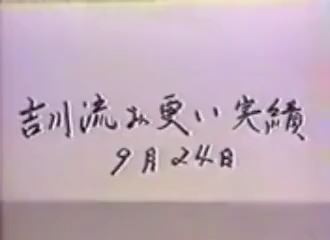 吉川流お更い実績
9月24日